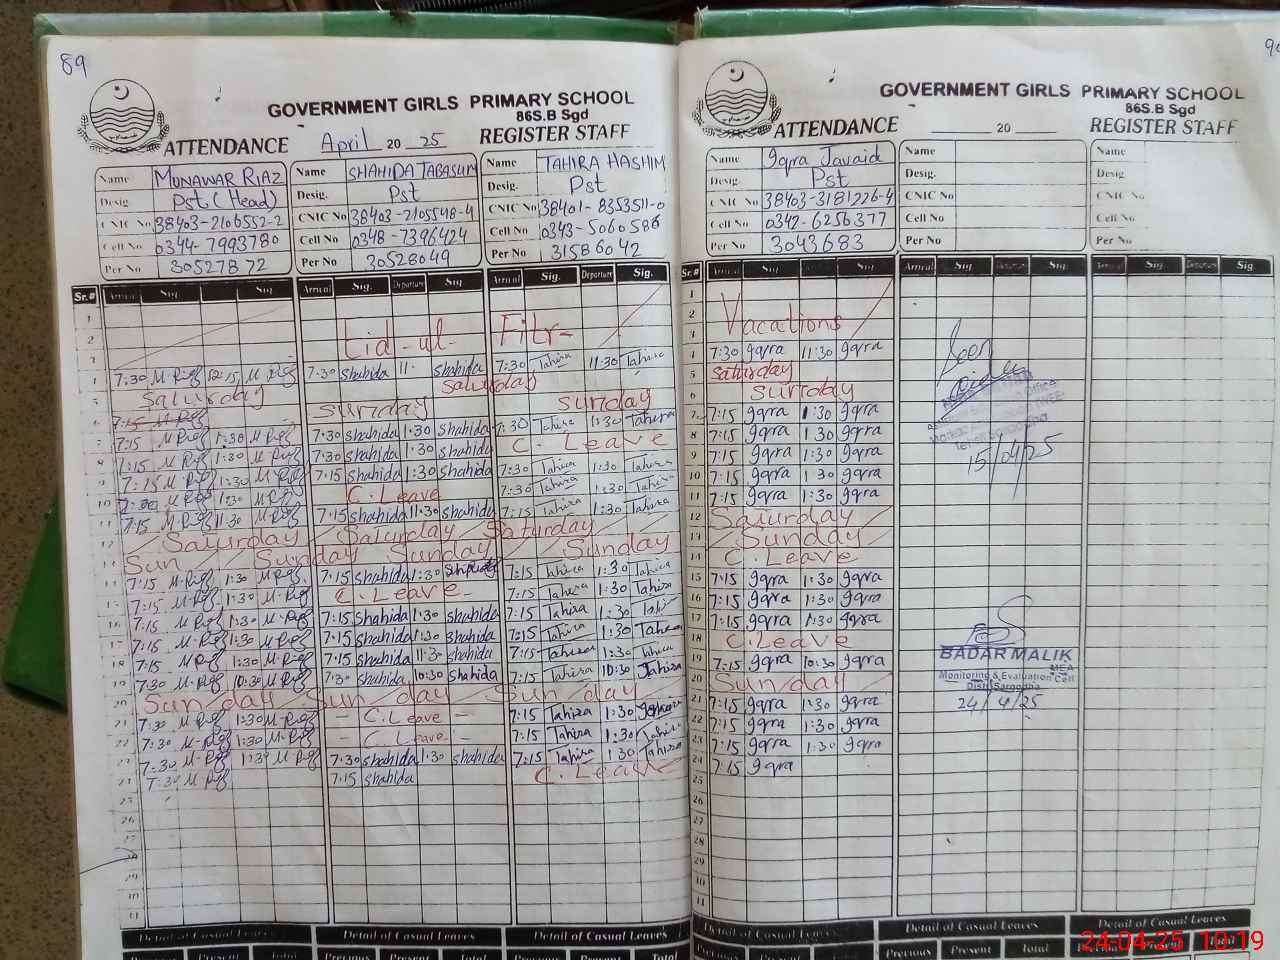 89
GOVERNMENT GIRLS PRIMARY SCHOOL
86S.B Sgd
ATTENDANCE April 20 25 REGISTER STAFF
Name MUNAWAR RIAZ
Desig. Pst (Head)
CNIC No 38403-2106552-2
Cell No 0344-7993780
Per No 30527872
Name SHAHIDA TABASUM
Desig. Pst
CNIC No 38403-2105548-4
Cell No 0348-7396424
Per No 30528049
Name TAHIRA HASHIM
Desig. Pst
CNIC No 38401-8353511-0
Cell No 0343-5060586
Per No 31586042
Sr.# Arrival Sig. Sig Arrival Sig. Departure Sig Arrival Sig. Departure Sig.
Eid-ul-Fitr-
7:30 M Riaz 7:30 shahida 11. shahida 7:30 Tahira 11:30 Tahira
Saturday Saturday
7:15 Sunday Sunday
7:15 M Riaz 1:30 M Riaz 7:30 shahida 1:30 shahida 7:30 Tahira 1:30 Tahira
7:15 M Riaz 1:30 M Riaz 7:30 shahida 1:30 shahida C. Leave
7:15 M Riaz 1:30 M Riaz 7:15 shahida 1:30 shahida 7:30 Tahira 1:30 Tahira
1:30 M Riaz C. Leave 7:30 Tahira 1:30 Tahira
7:15 M Riaz 11:30 M Riaz 7:15 shahida 11:30 shahida 7:15 Tahira 1:30 Tahira
Saturday Saturday Saturday
Sun Sunday Sunday Sunday
7:15 M Riaz 1:30 M Riaz 7:15 shahida 1:30 7:15 Tahira 1:30 Tahira
7:15 M Riaz 1:30 M Riaz C. Leave 7:15 Tahira 1:30 Tahira
7:15 M Riaz 1:30 M Riaz 7:15 shahida 1:30 shahida 7:15 Tahira 1:30 Tahira
7:15 M Riaz 1:30 M Riaz 7:15 shahida 1:30 shahida 7:15 Tahira 1:30 Tahira
7:15 M Riaz 1:30 M Riaz 7:15 shahida 11:30 shahida 7:15 Tahira 1:30 Tahira
7:30 M Riaz 10:30 M Riaz 7:30 shahida 10:30 shahida 7:15 Tahira 10:30 Tahira
Sunday Sunday Sunday
7:30 M Riaz 1:30 M Riaz - C. Leave - 7:15 Tahira 1:30
7:30 M Riaz 1:30 M Riaz - C. Leave - 7:15 Tahira 1:30 Tahira
7:30 M Riaz 1:30 M Riaz 7:30 shahida 1:30 shahida 7:15 Tahira 1:30 Tahira
7:30 M Riaz 7:15 shahida C. Leave
Detail of Casual Leaves Detail of Casual Leaves Detail of Casual Leaves
Previous Present Total Previous Present Total Previous Present Total
GOVERNMENT GIRLS PRIMARY SCHOOL
86S.B Sgd
ATTENDANCE 20 REGISTER STAFF
Name Iqra Javaid
Desig. Pst
CNIC No 38403-3181226-4
Cell No 0342-6256377
Per No 3043683
Name
Desig.
CNIC No
Cell No
Per No
Name
Desig.
CNIC No
Cell No
Per No
Sr.# Arrival Sig Departure Sig Arrival Sig Departure Sig Arrival Sig. Departure Sig
1
2 Vacations
3
4 7:30 Iqra 11:30 Iqra
5 Saturday
6 Sunday
7 7:15 Iqra 1:30 Iqra
8 7:15 Iqra 1 30 Iqra
9 7:15 Iqra 1:30 Iqra
10 7:15 Iqra 1 30 Iqra
11 7:15 Iqra 1:30 Iqra
12 Saturday
13 Sunday
14 C. Leave
15 7:15 Iqra 1:30 Iqra
16 7:15 Iqra 1:30 Iqra
17 7:15 Iqra 1:30 Iqra
18 C. Leave
19 7:15 Iqra 10:30 Iqra
20 Sunday
21 7:15 Iqra 1:30 Iqra
22 7:15 Iqra 1:30 Iqra
23 7:15 Iqra 1:30 Iqra
24 7:15 Iqra
25
26
27
28
29
30
31
Seen
15/04/25
BADAR MALIK
MEA
Monitoring & Evaluation Cell
Distt Sargodha
24/4/25
Detail of Casual Leaves Detail of Casual Leaves Detail of Casual Leaves
Previous Present Total Previous Present Total
24-04-25 10:19